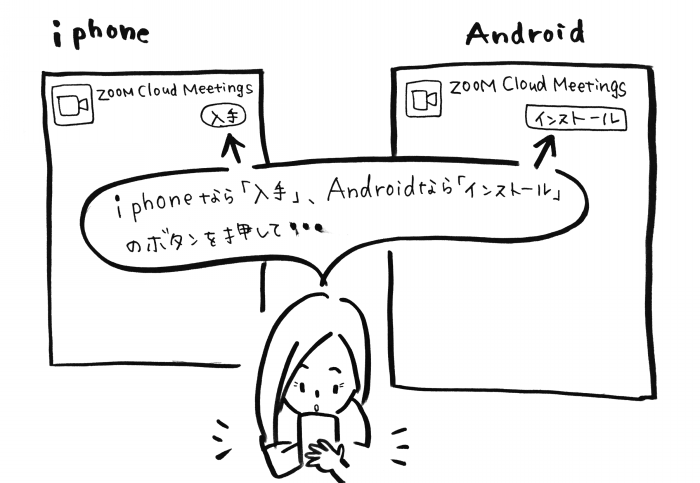 iphone
Android
ZOOM Cloud Meetings
入手
ZOOM Cloud Meetings
インストール
iphoneなら「入手」、Androidなら「インストール」
のボタンを押して・・・